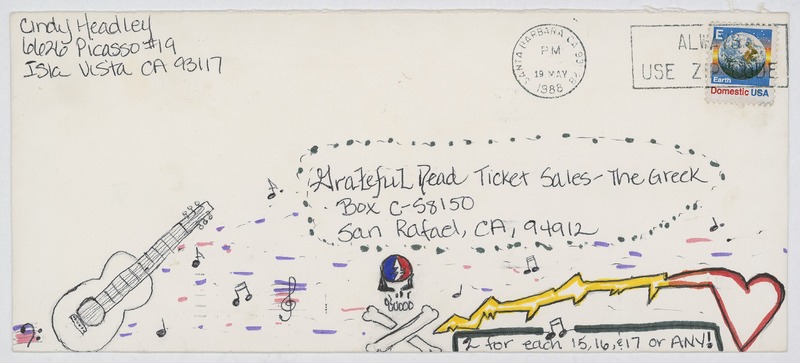 Cindy Headley
6626 Picasso #19
Isla Vista CA 93117
SANTA BARBARA CA 93
PM
19 MAY
1988
ALWAYS
USE ZIP CODE
E
Earth
Domestic USA
Grateful Dead Ticket Sales - The Greek
Box C-S8150
San Rafael, CA, 94912
2 for each 15, 16, & 17 or ANY!